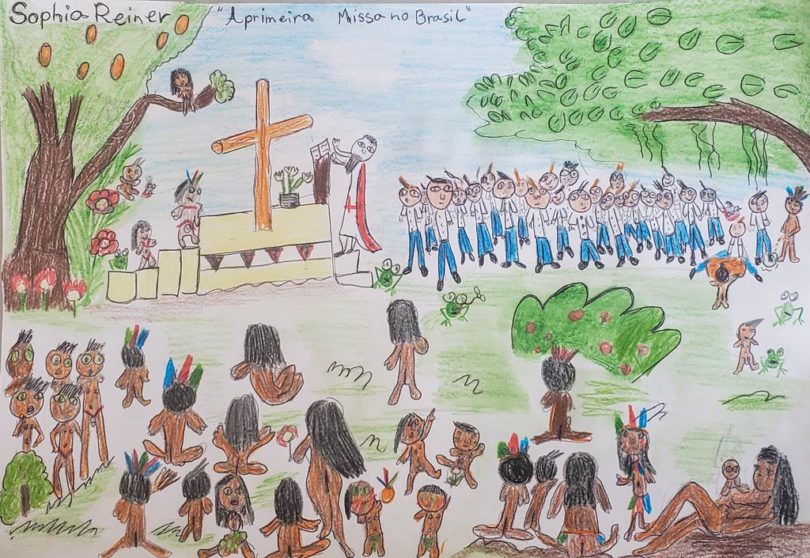 Sophia Reiner "Aprimeira Missa no Brasil"